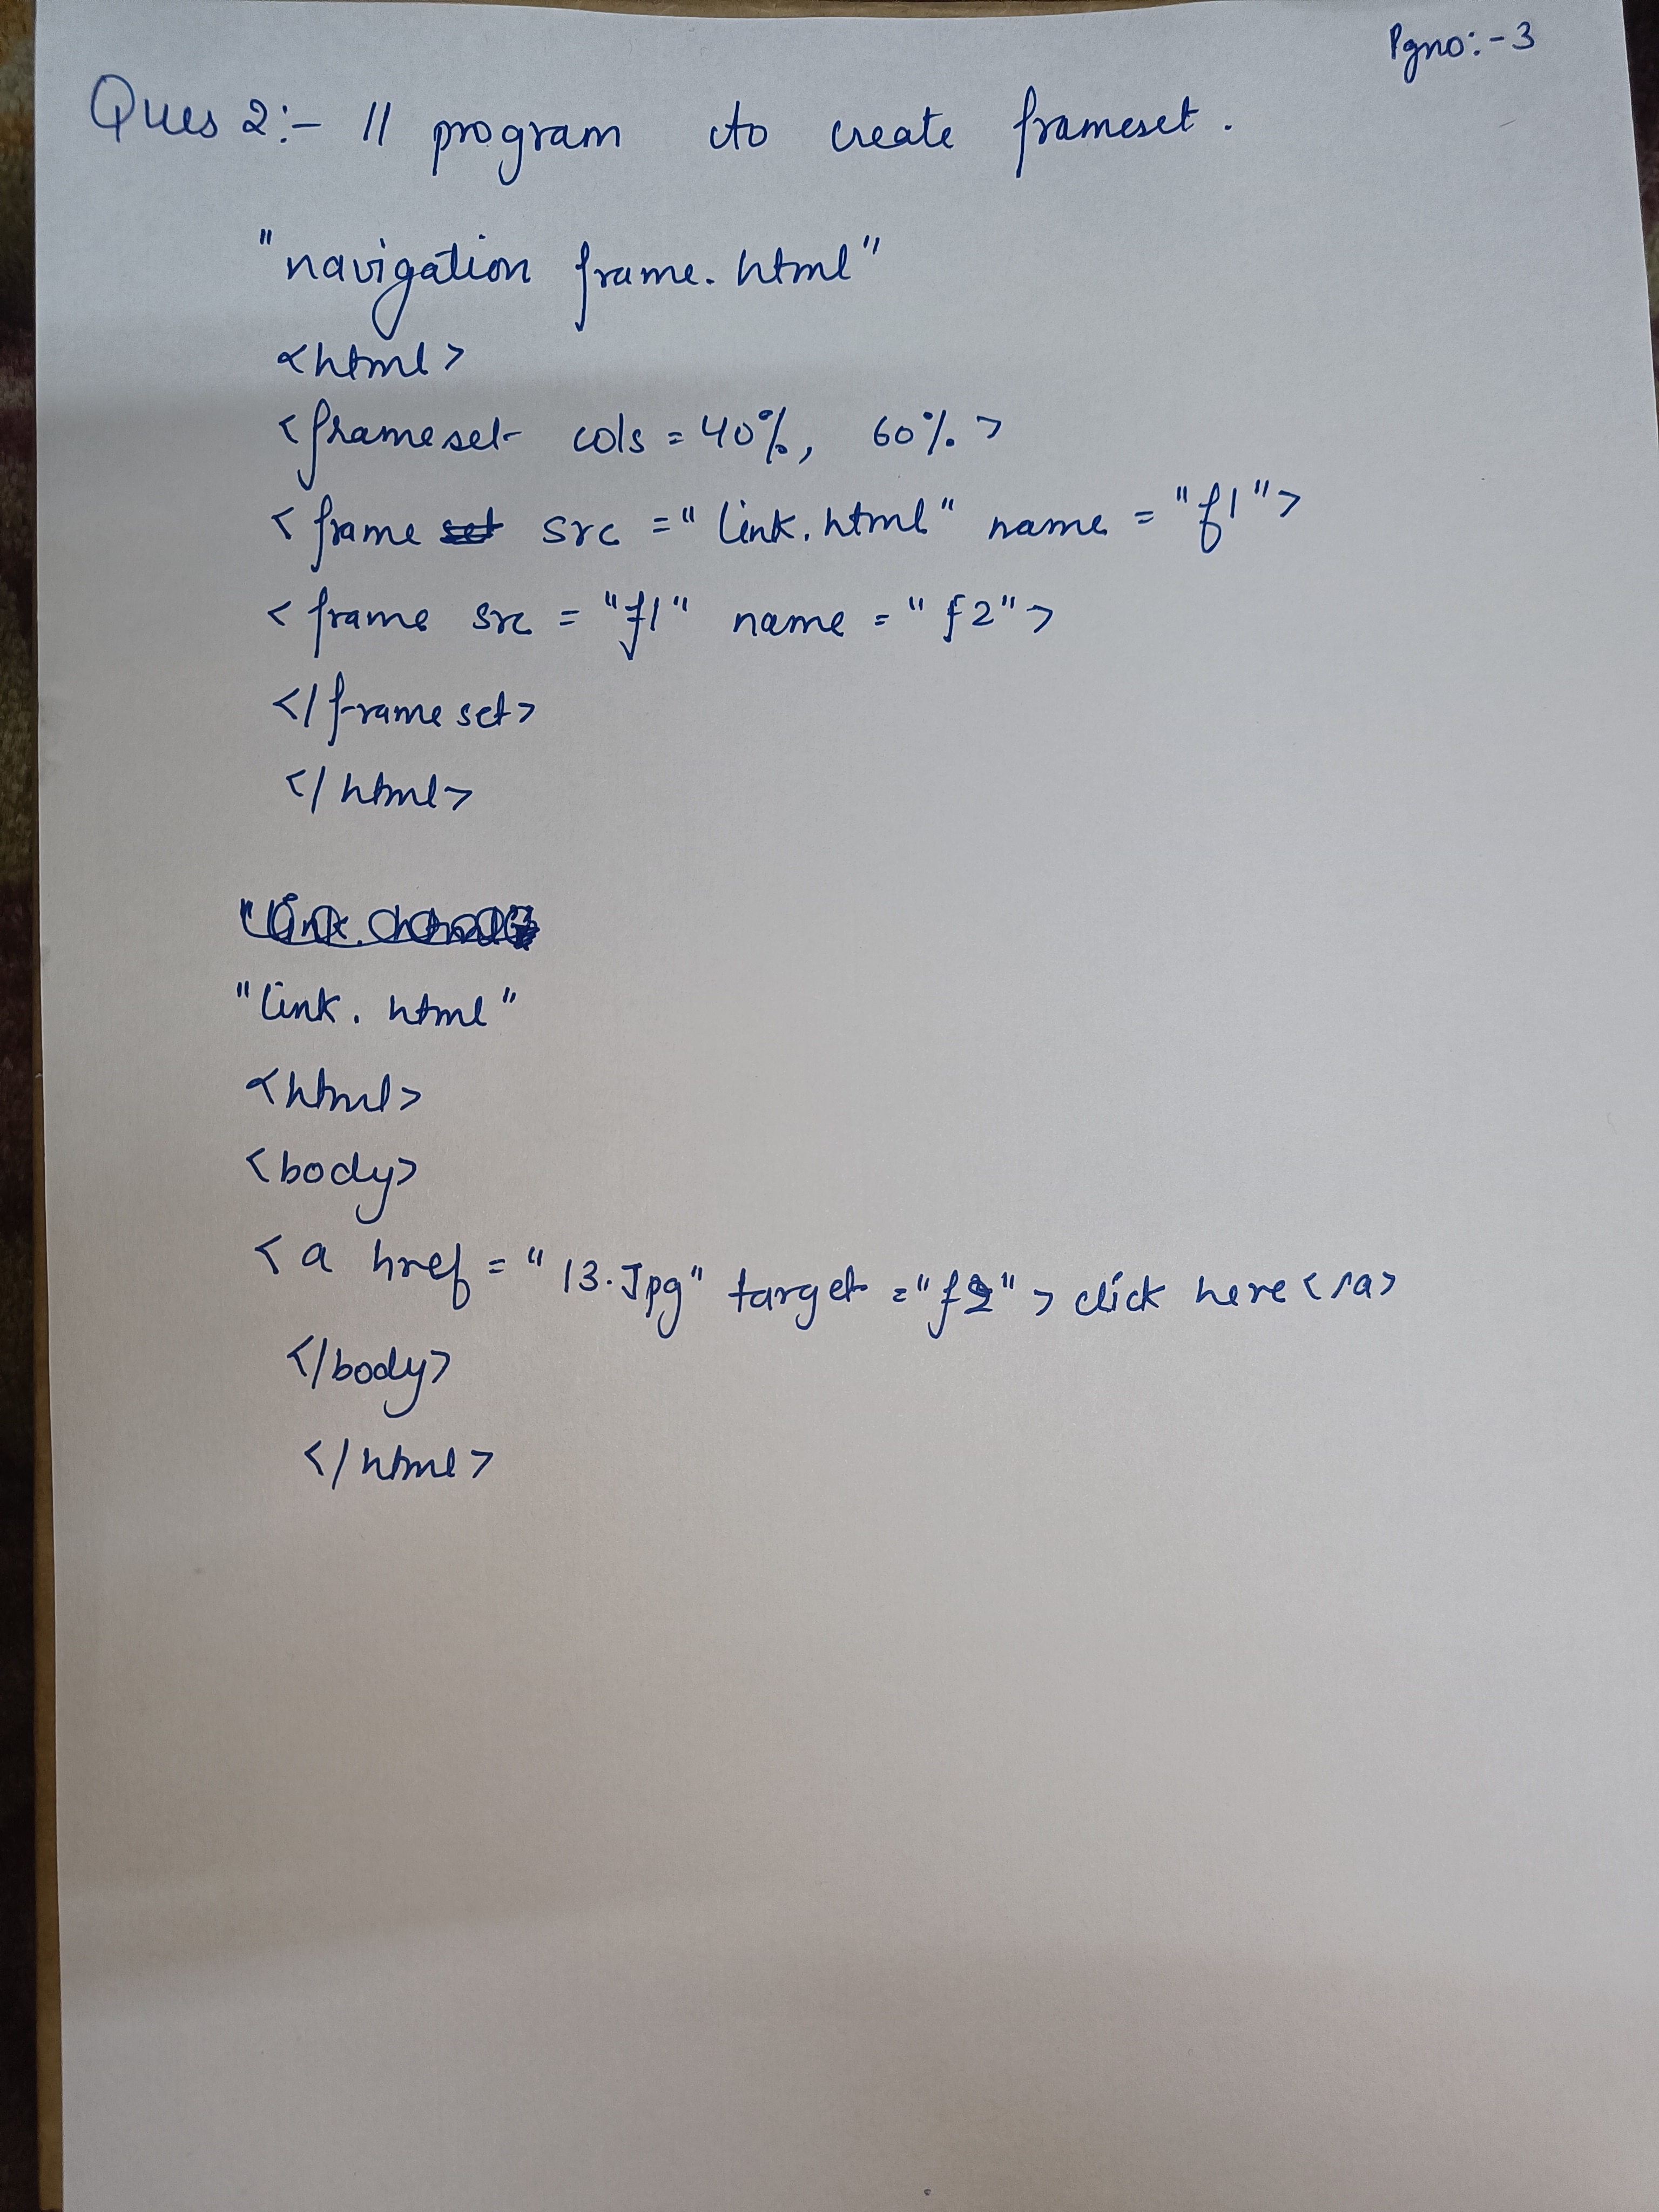 Pgno:-3
Ques 2:- // program to create frameset.
"navigation frame.html"
<html>
<frameset cols = 40%, 60%>
<frame src = "link.html" name = "f1">
<frame src = "f1" name = "f2">
</frameset>
</html>
"link.html"
<html>
<body>
<a href = "13.Jpg" target = "f2" > click here </a>
</body>
</html>